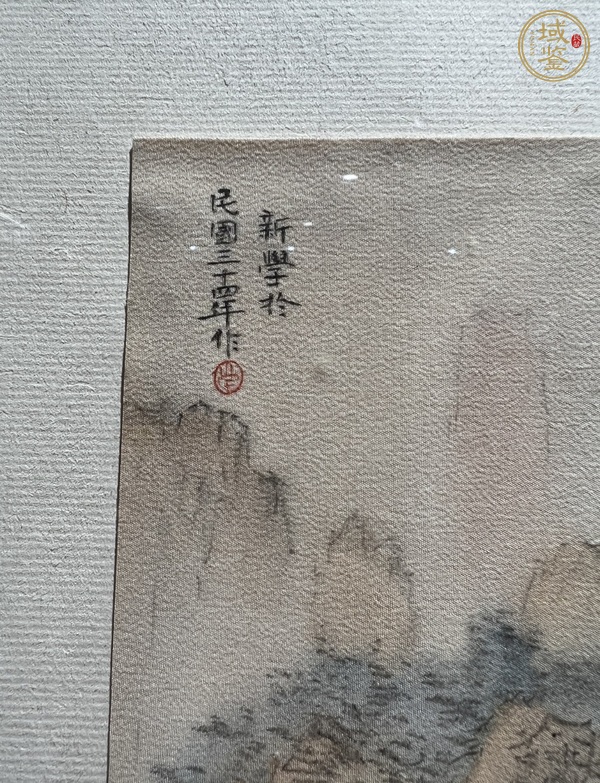 新學於
民國三十四年作
域鉴